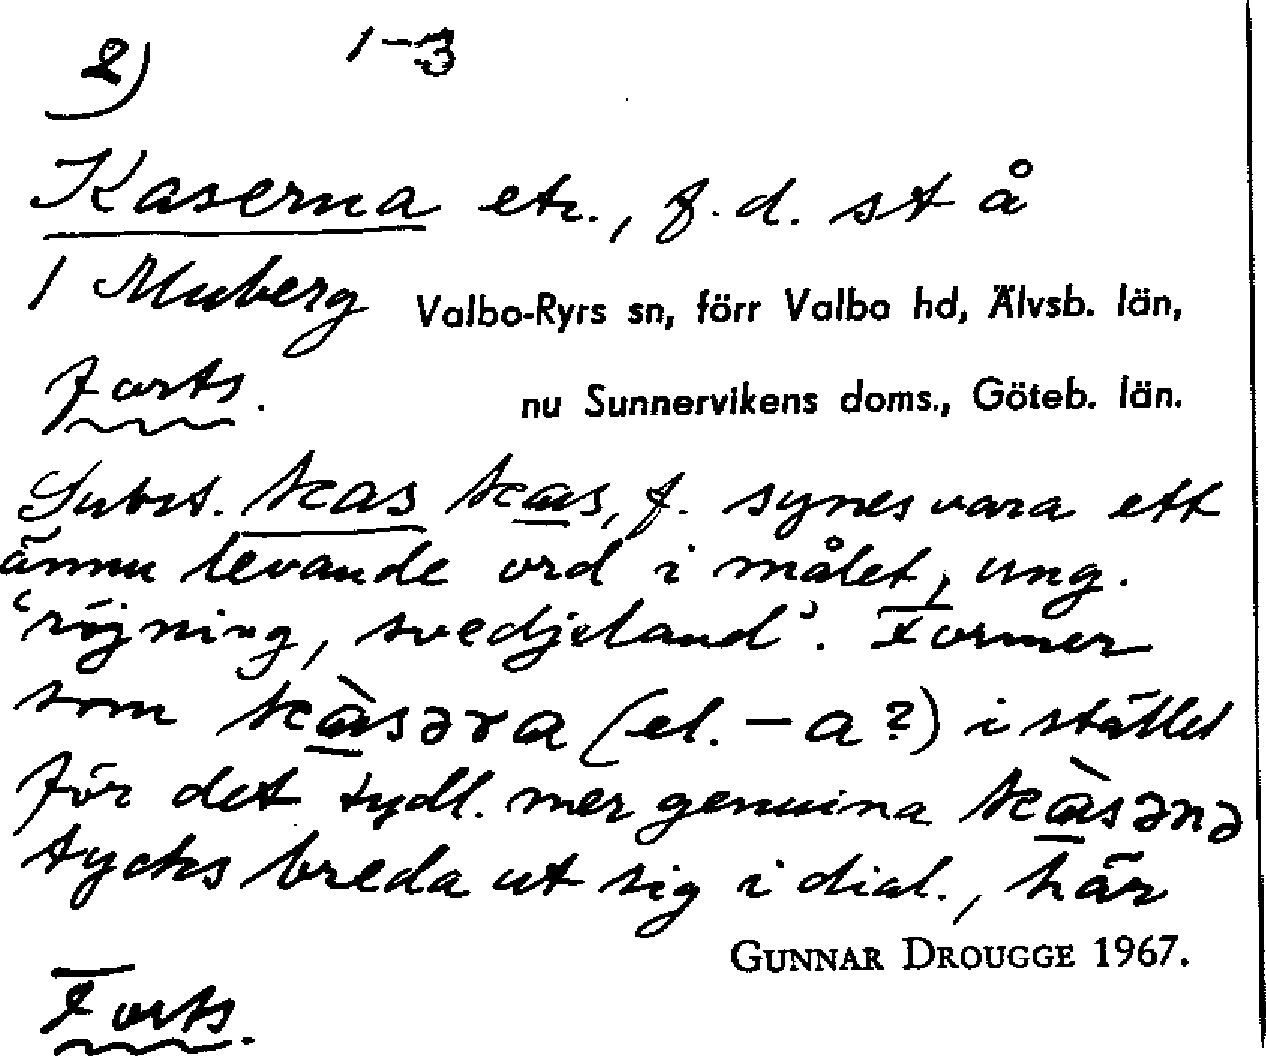 2) 1-3
Kaserna etc., f.d. st å
1 Muberg Valbo-Ryrs sn, förr Valbo hd, Älvsb. län,
Forts. nu Sunnervikens doms., Göteb. län.
Subst. kas kas, f. synes vara ett
ännu levande ord i målet, ung.
'röjning, svedjeland'. Former
som kàsəra (el. -a?) i stället
för det tydl. mer genuina kàsənə
tycks breda ut sig i dial., här
GUNNAR DROUGGE 1967.
Forts.